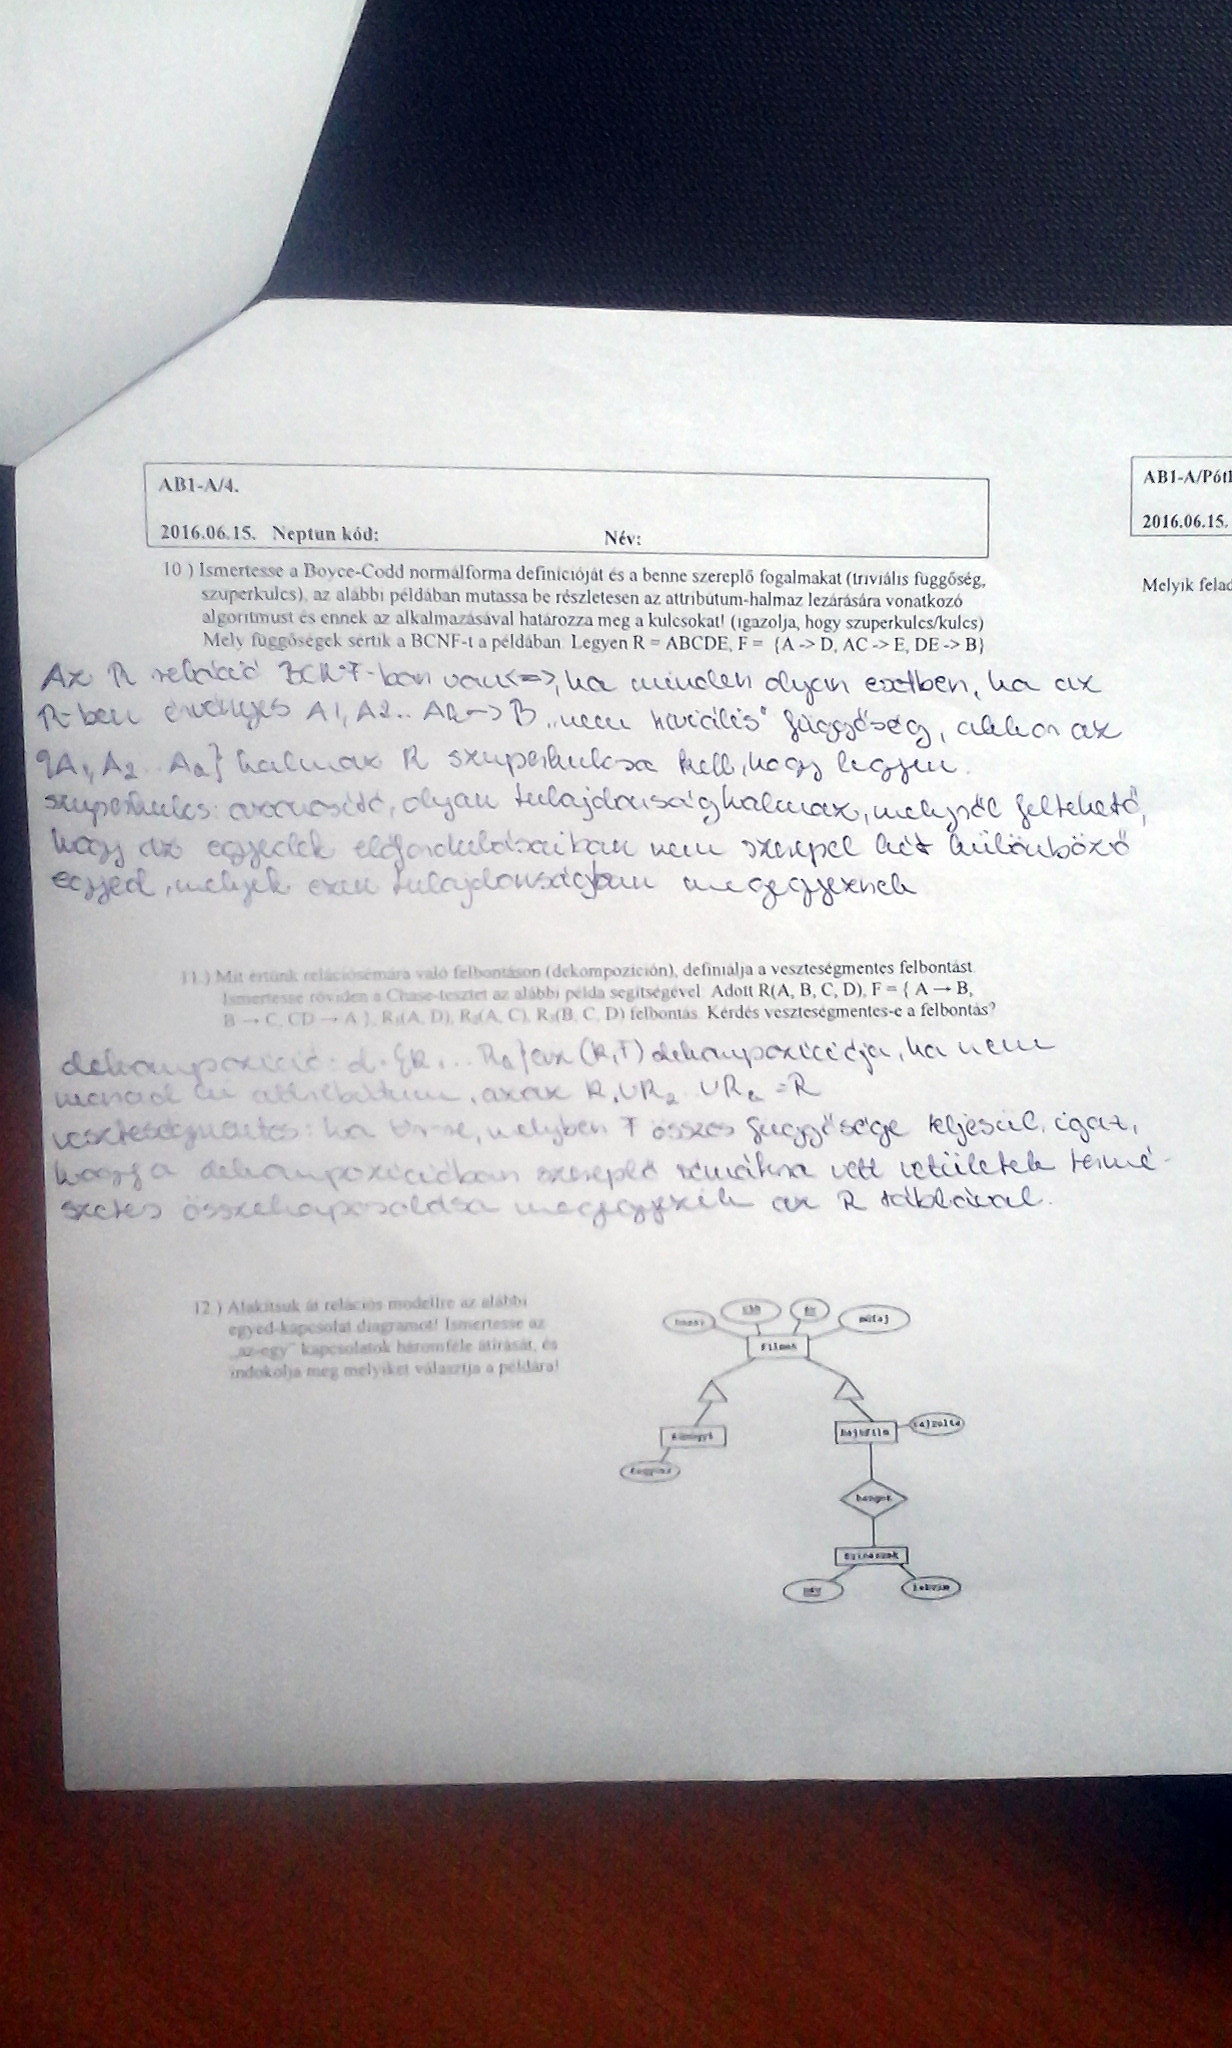 AB1-A/4.
2016.06.15. Neptun kód: Név:
10.) Ismertesse a Boyce-Codd normálforma definícióját és a benne szereplő fogalmakat (triviális függőség,
szuperkulcs), az alábbi példában mutassa be részletesen az attribútum-halmaz lezárására vonatkozó
algoritmust és ennek az alkalmazásával határozza meg a kulcsokat! (igazolja, hogy szuperkulcs/kulcs)
Mely függőségek sértik a BCNF-t a példában. Legyen R = ABCDE, F = {A -> D, AC -> E, DE -> B}
Az R reláció BCNF-ban van <=>, ha minden olyan esetben, ha az
R-ben érvényes A1, A2.. An -> B „nem triviális" függőség, akkor az
{A1, A2 .. An} halmaz R szuperkulcsa kell, hogy legyen.
szuperkulcs: azonosító, olyan tulajdonsághalmaz, melyről feltehető,
hogy az egyedek előfordulásaiban nem szerepel két különböző
egyed, melyek ezen tulajdonságban megegyeznek
11.) Mit értünk relációsémára való felbontáson (dekompozíción), definiálja a veszteségmentes felbontást.
Ismertesse röviden a Chase-tesztet az alábbi példa segítségével. Adott R(A, B, C, D), F = { A → B,
B → C, CD → A }, R₁(A, D), R₂(A, C), R₃(B, C, D) felbontás. Kérdés veszteségmentes-e a felbontás?
dekompozíció: d={R1 ... Rn} az (R,F) dekompozíciója, ha nem
marad ki attribútum, azaz R1∪R2..∪Rn =R
veszteségmentes: ha melyben F összes függősége teljesül, igaz,
hogy a dekompozícióban szereplő sémákra vett vetületek termé-
szetes összekapcsolása megegyezik az R táblával.
12.) Alakítsuk át relációs modellre az alábbi
egyed-kapcsolat diagramot! Ismertesse az
„az-egy" kapcsolatok háromféle átírását, és
indokolja meg melyiket választja a példára!
cím
év
műfaj
Filmek
rajzolta
Rajzfilm
hangok
Színészek
név
lakcím
AB1-A/Pótl
2016.06.15.
Melyik felad